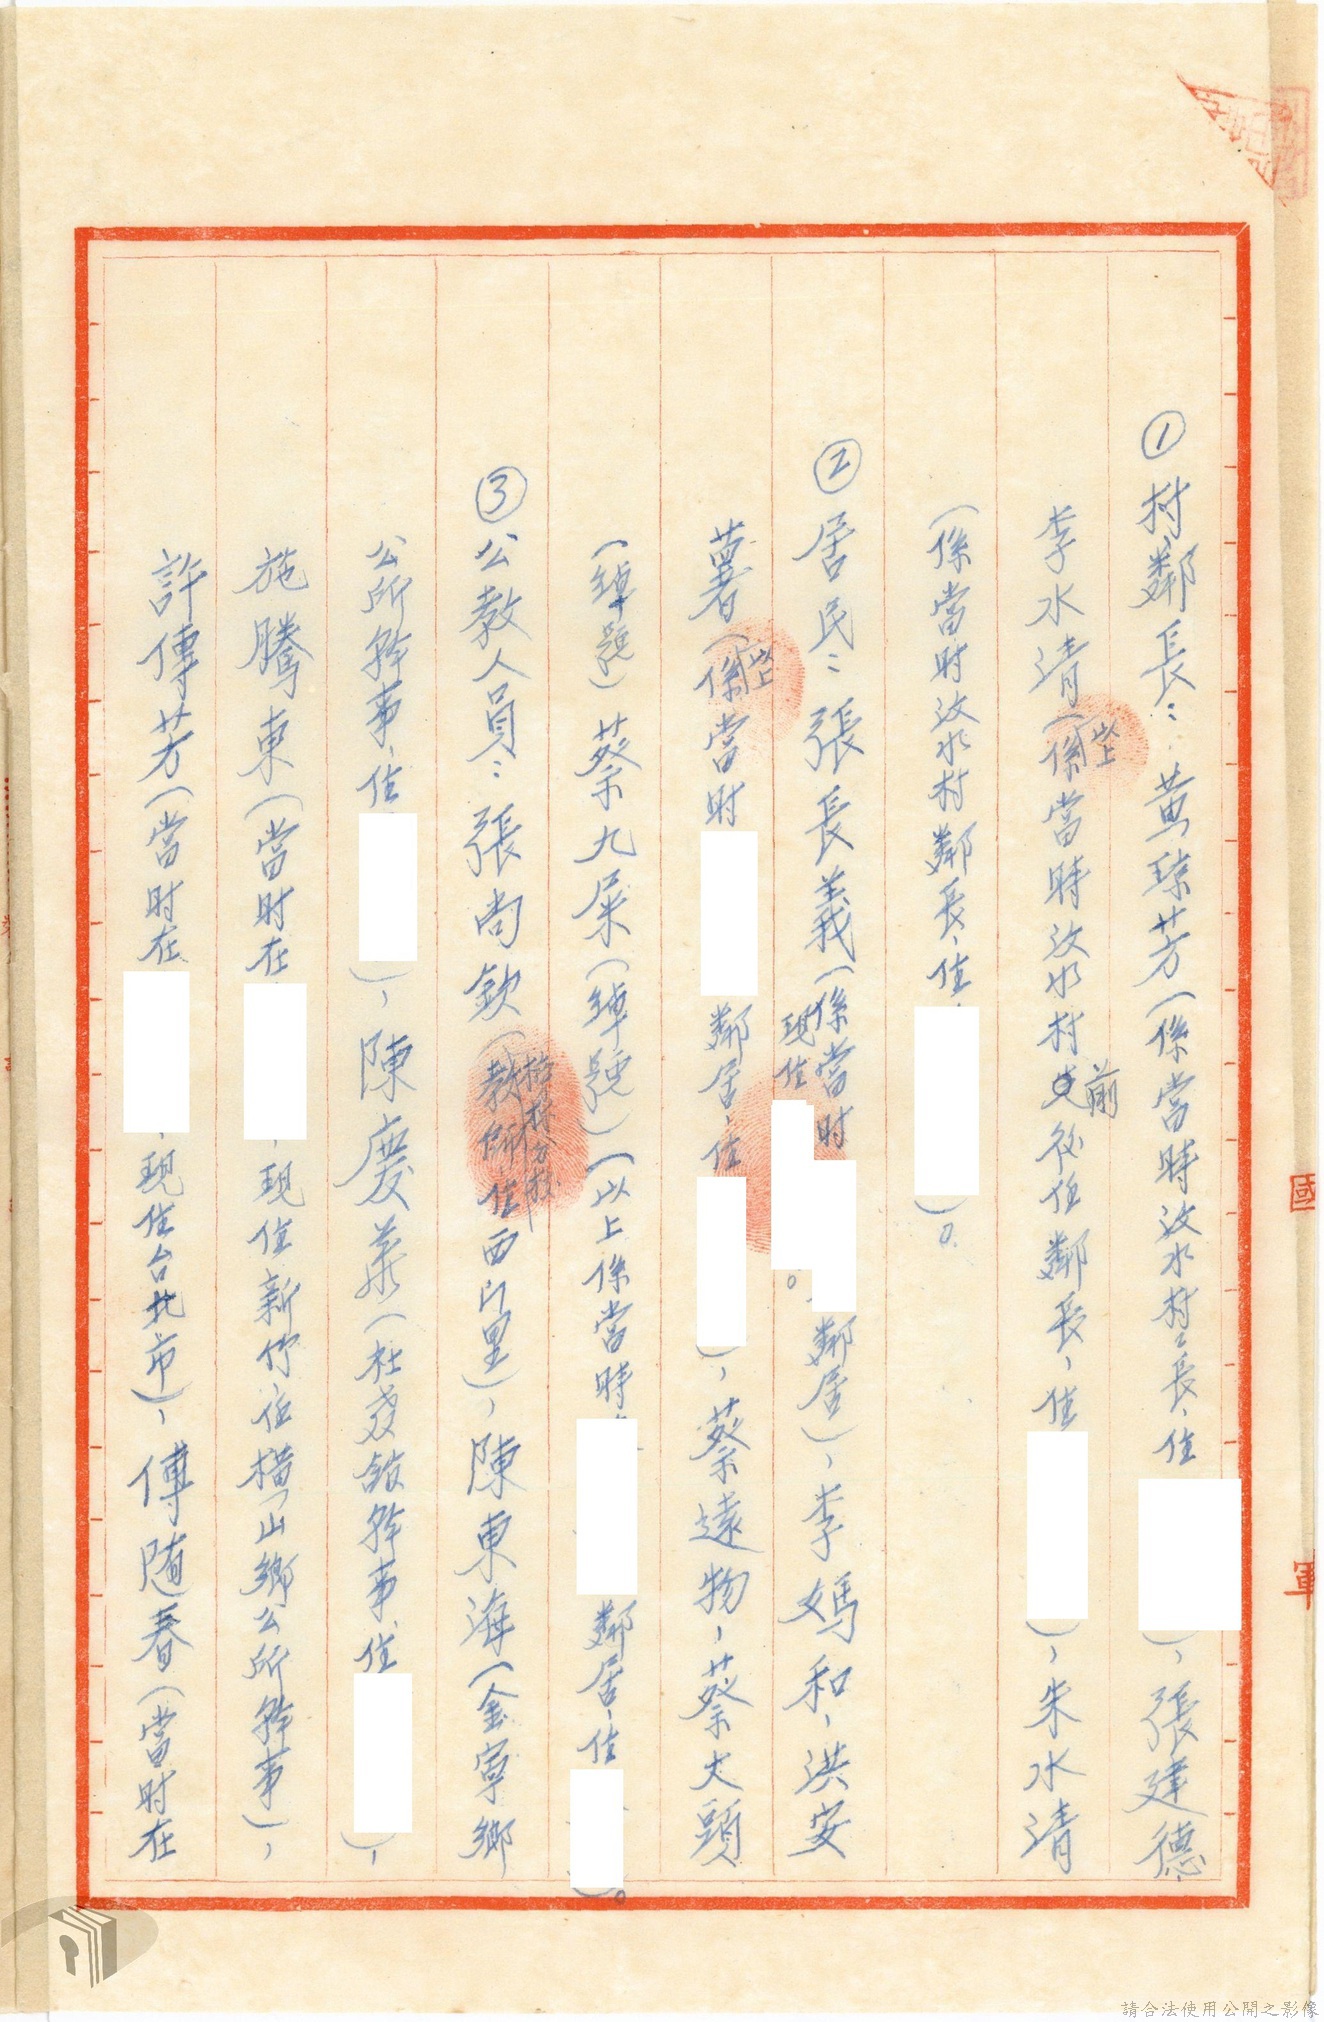 ① 村鄰長:黃琼芳(係當時汶水村村長,住),張建德、
李水清(係當時汶水村前後任鄰長,住),朱水清
以上
(係當時汶水村鄰長,住)。
② 居民:張長義(係當時鄰居),李媽和,洪安
現住。
薯(係當時鄰居,住),蔡遠物,蔡大頭、
以上
(綽號)蔡九屎(綽號)(以上係當時鄰居,住)。
③ 公教人員:張尚欽(教師,住西門里),陳東海(金寧鄉
公所幹事,住),陳慶(社教館幹事,住),
施騰東(當時在,現住新竹任橫山鄉公所幹事),
許傳芳(當時在,現住台北市),傅隨春(當時在
國
軍
請合法使用公開之影像